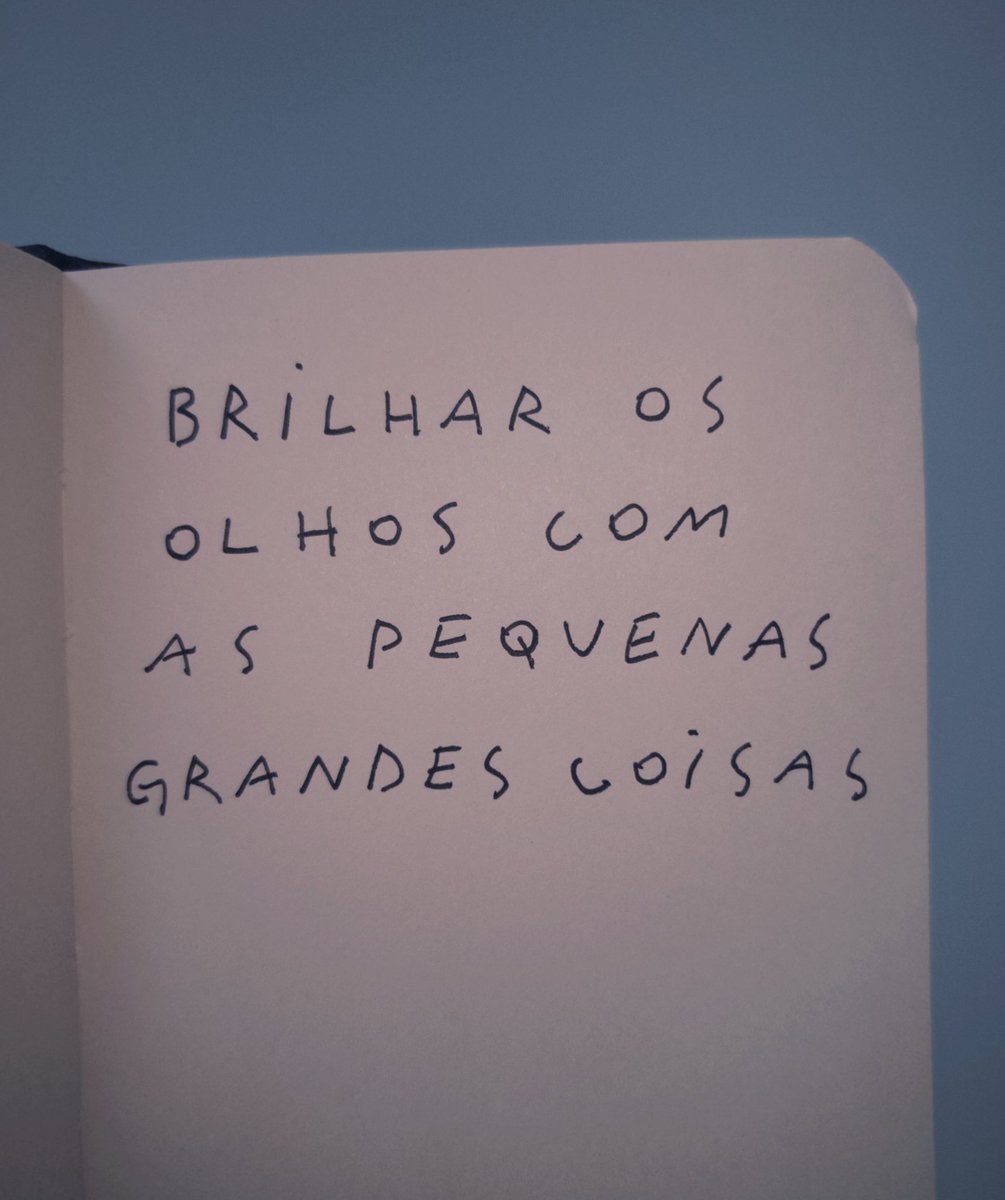 BRiLHAR OS
OLHOS COM
AS PEQUENAS
GRANDES COiSAS